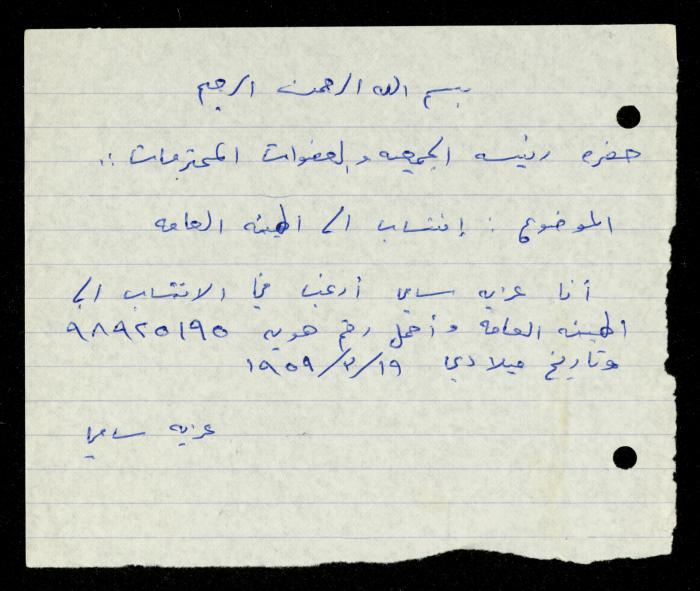 بسم الله الرحمن الرحيم
حضره رئيسه الجمعيه والعضوات المحترمات ..
الموضوع : إنتساب الى الهيئه العامه
أنا عزيه سامي أرغب في الانتساب الى
الهيئه العامه وأحمل رقم هويه ٩٨٩٢٥١٩٥
وتاريخ ميلادي ١٩/٣/١٩٥٩
عزيه سامي